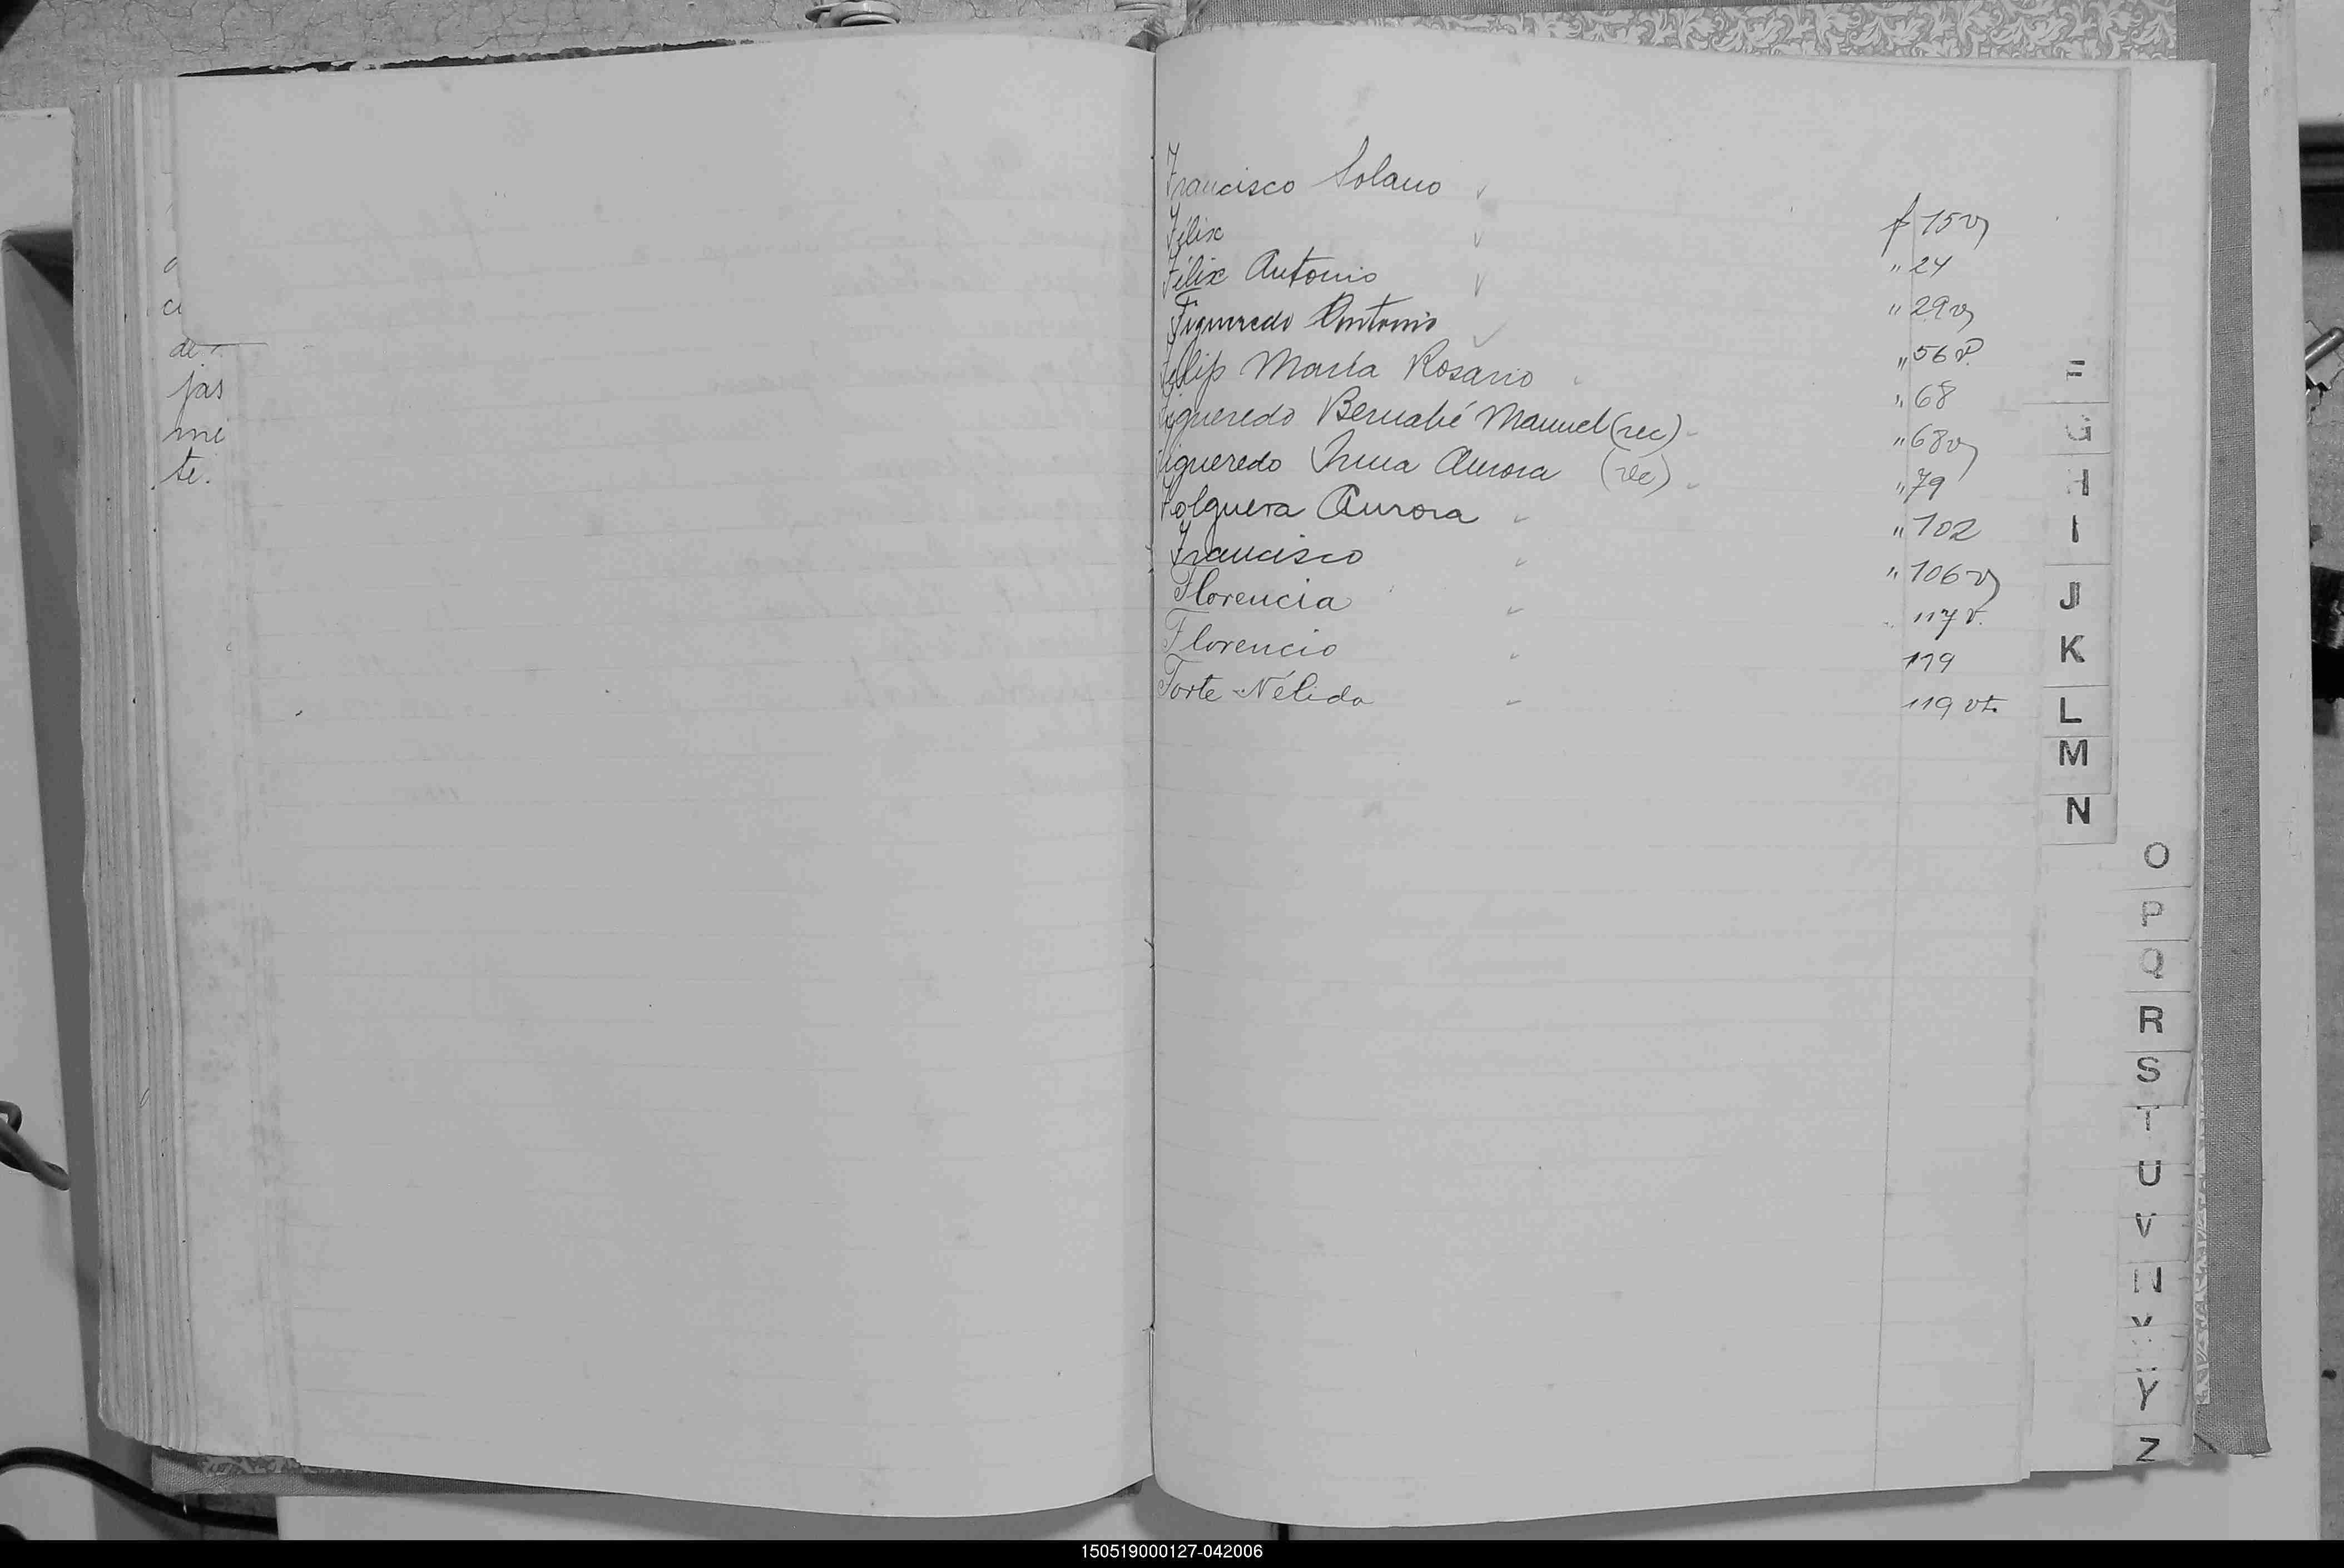 de
jas
mi
te.
Francisco Solano f 15v
Félix " 24
Félix Antonio " 29v
Figueredo Antonio " 56v
Felip María Rosario " 68
Figueredo Bernabé Manuel (rec) " 68v
Figueredo Irma Aurora (rec) " 79
Folguera Aurora " 102
Francisco " 106v
Florencia " 117 v.
Florencio 119
Forte Nélida 119 vt.
F
G
H
I
J
K
L
M
N
O
P
Q
R
S
T
U
V
Y
Z
150519000127-042006